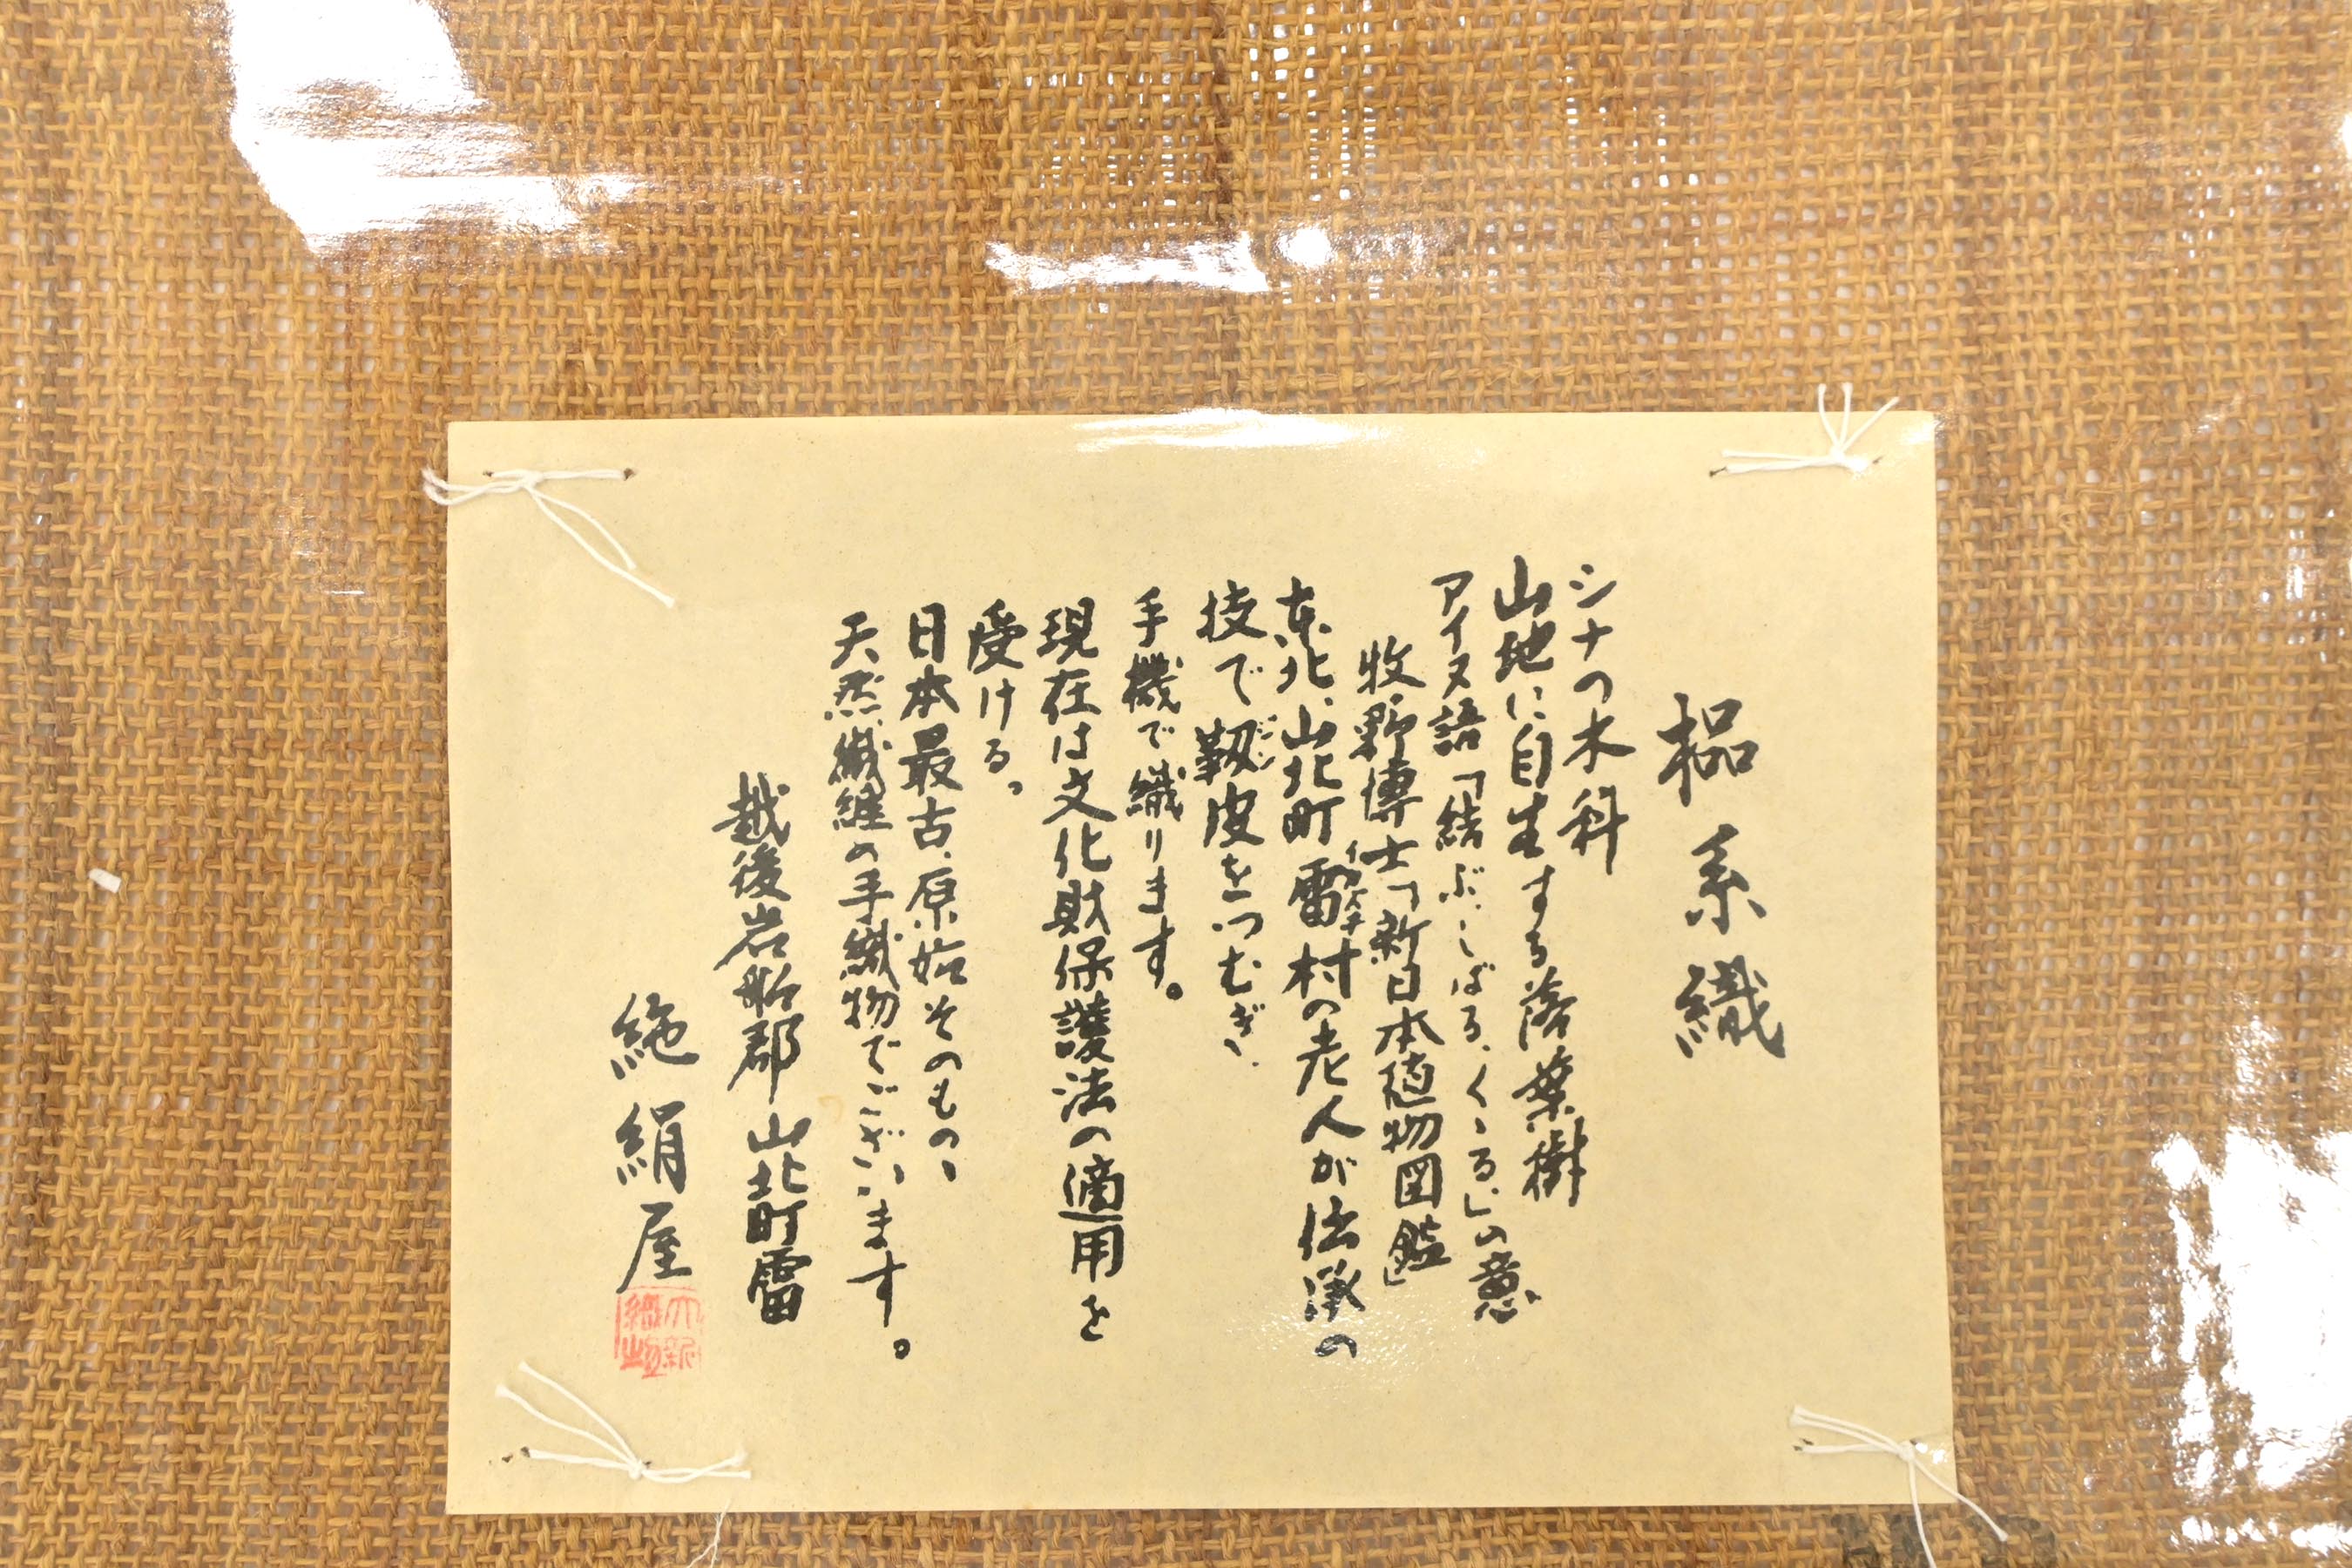 榀糸織
シナの木科
山地に自生する落葉樹
アイヌ語「結ぶ、しばる、くゝる」の意
牧野博士「新日本植物図鑑」
東北、山北町雷村の老人が伝承の
イカヅチ
技で靱皮をつむぎ、
ジン
手機で織ります。
現在は文化財保護法の適用を
受ける。
日本最古、原始そのもの、
天然繊維の手織物でございます。
越後岩船郡 山北町雷
絁絹屋